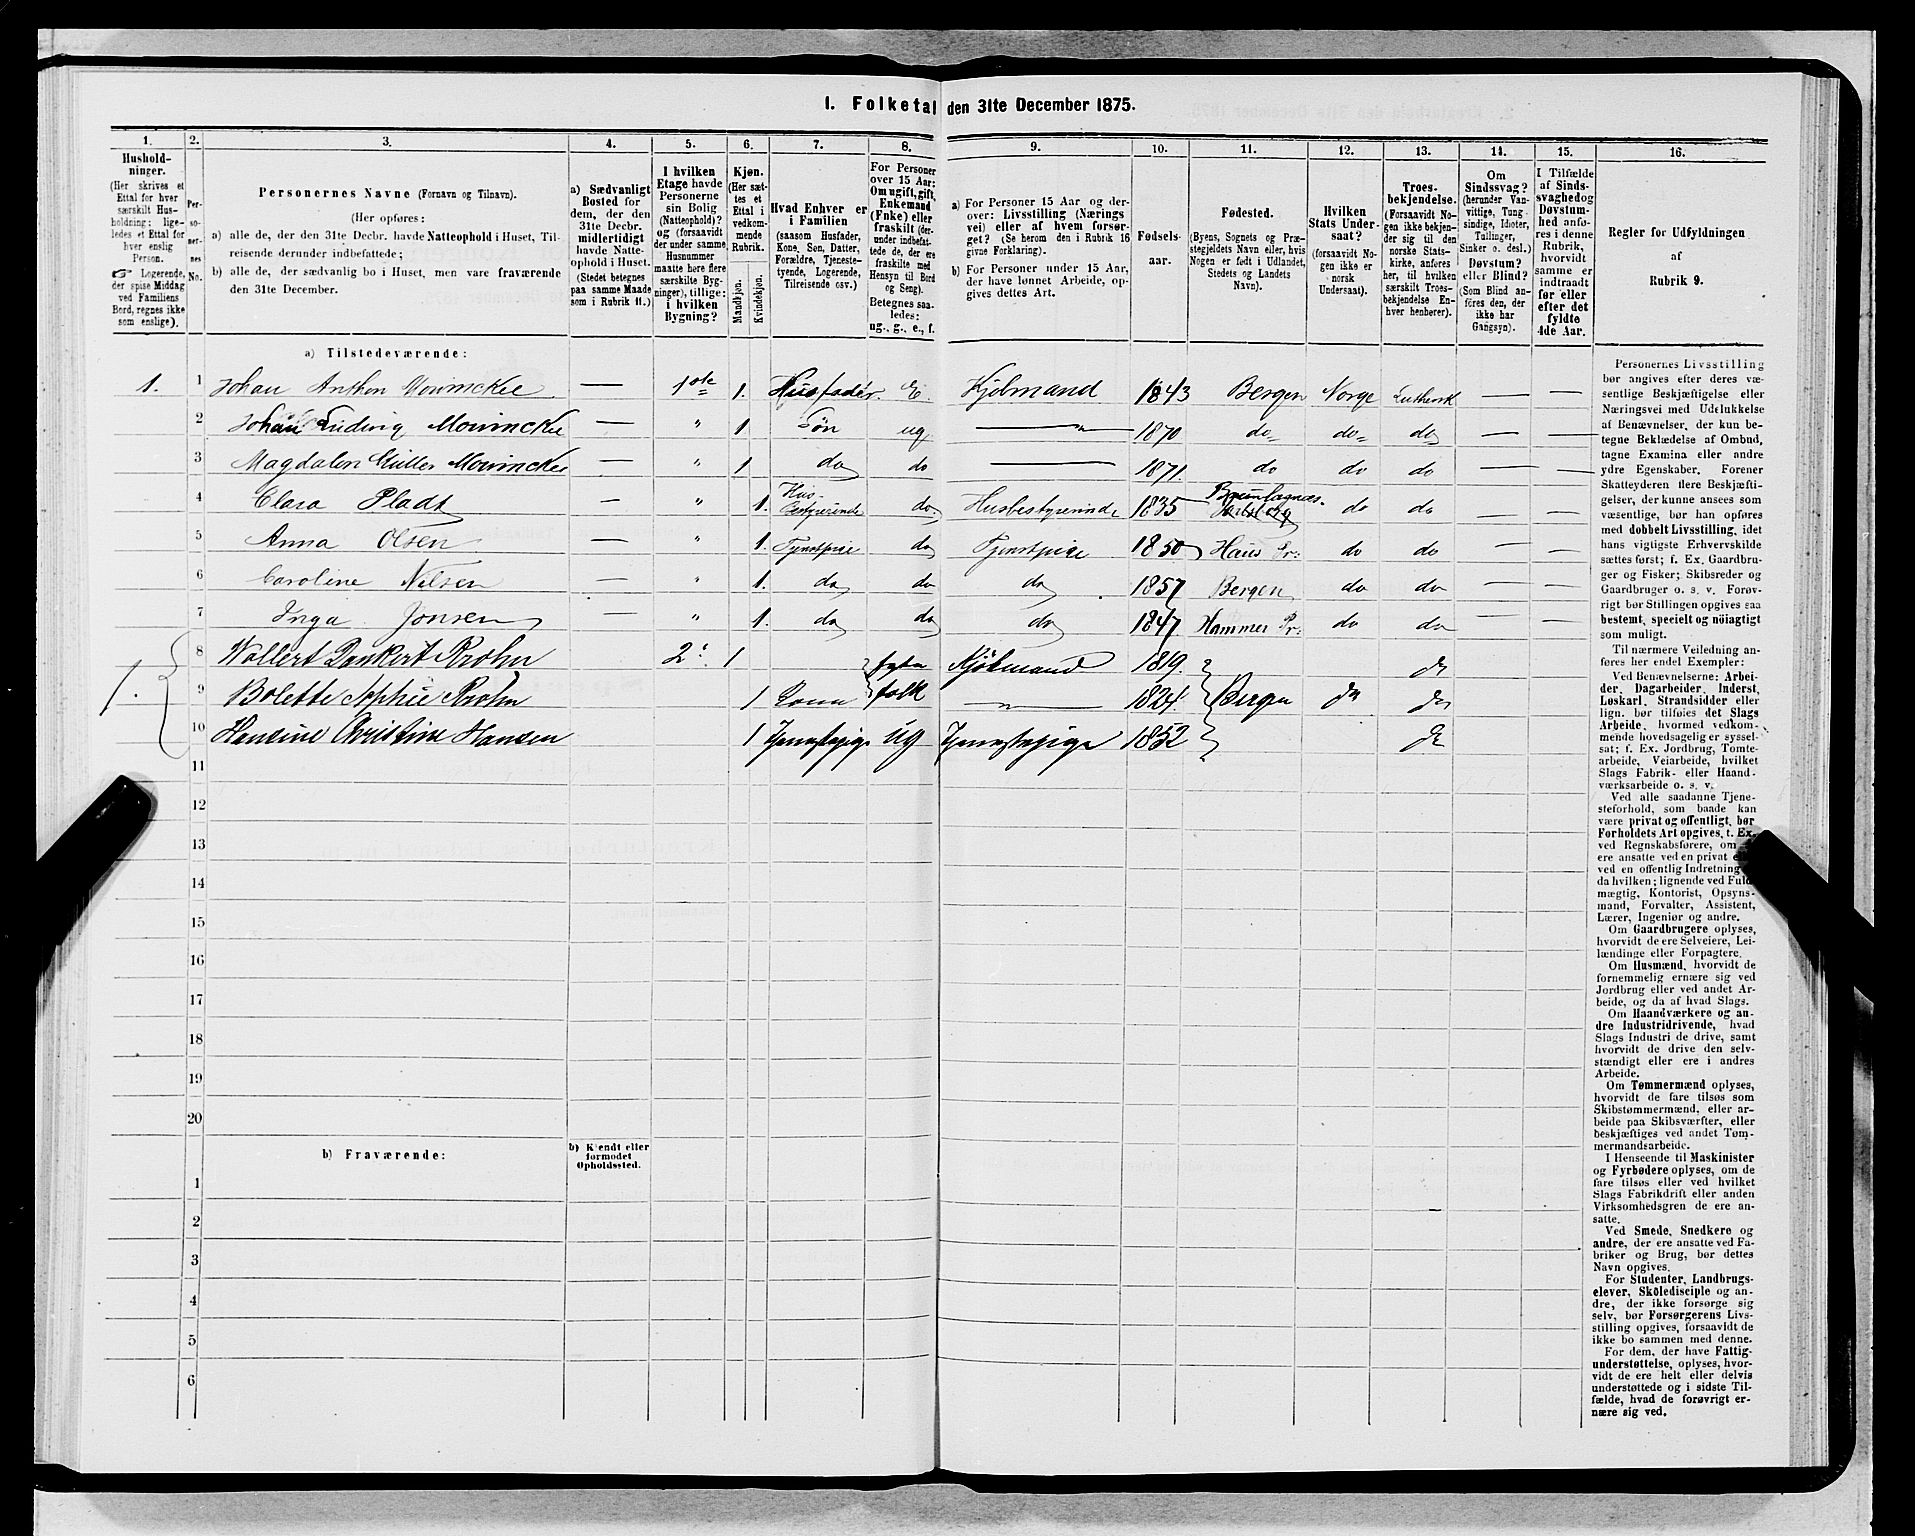 1. Folketal den 31te December 1875.
1. 2. 3. 4. 5. 6. 7. 8. 9. 10. 11. 12. 13. 14. 15. 16.
Hushold-
ninger.
(Her skrives et
Ettal for hver
særskilt Hus-
holdning; lige-
ledes et Ettal for
hver enslig
Person.
☞ Logerende,
der spise Middag
ved Familiens
Bord, regnes ikke
som enslige).
Per-
so-
ner-
nes
No.
Personernes Navne (Fornavn og Tilnavn).
(Her opføres:
a) alle de, der den 31te Decbr. havde Natteophold i Huset, Til-
reisende derunder indbefattede;
b) alle de, der sædvanlig bo i Huset, men vare fraværende
den 31te December.
a) Sædvanligt
Bosted for
dem, der den
31te Decbr.
midlertidigt
havde Natte-
ophold i Huset.
(Stedet betegnes
paa samme Maade
som i Rubrik 11.)
I hvilken
Etage havde
Personerne
sin Bolig
(Natteophold)?
og (forsaavidt
der under samme
Husnummer
maatte høre flere
særskilte Byg-
ninger), tillige:
i hvilken
Bygning?
Kjøn.
(Her sæt-
tes et
Ettal i
vedkom-
mende
Rubrik.
Mandkjøn.
Kvindekjøn.
Hvad Enhver er
i Familien
(saasom Husfader,
Kone, Søn, Datter,
Forældre, Tjeneste-
tyende, Logerende,
Tilreisende osv.)
For Personer
over 15 Aar:
Om ugift, gift,
Enkemand
(Enke) eller
fraskilt (der-
under indbefat-
tede de, der ere
fraskilte med
Hensyn til Bord
og Seng).
Betegnes saa-
ledes:
ug., g., e., f.
a) For Personer 15 Aar og der-
over: Livsstilling (Nærings
vei) eller af hvem forsør-
get? (Se herom den i Rubrik 16
givne Forklaring).
b) For Personer under 15 Aar,
der have lønnet Arbeide, op-
gives dettes Art.
Fødsels-
aar.
Fødested.
(Byens, Sognets og Præ-
stegjeldets Navn eller, hvis
Nogen er født i Udlandet,
Stedets og Landets
Navn).
Hvilken
Stats Under-
saat?
(forsaavidt No-
gen ikke er
norsk
Undersaat).
Troes-
bekjendelse.
(Forsaavidt No-
gen ikke bekjen-
der sig til den
norske Stats-
kirke, anføres
her, til hvilken
særskilt Troes-
bekjendelse En-
hver henhører).
Om
Sindssvag?
(herunder Van-
vittige, Tung-
sindige, Idioter,
Tullinger,
Sinker o. desl.)
Døvstum?
eller Blind?
(Som Blind an-
føres den, der
ikke har
Gangsyn).
I Tilfælde
af Sinds-
svaghed og
Døvstum-
hed anfø-
res i denne
Rubrik,
hvorvidt
samme er
indtraadt
før eller
efter det
fyldte
4de Aar.
Regler for Udfyldningen
af
Rubrik 9.
a) Tilstedeværende:
1. 1 Johan Anthon Mowinckel — 1ste 1. Husfader. E. Kjøbmand 1843 Bergen Norge Luthersk — —
2 Johan Ludvig Mowinckel — " 1 Søn ug —"— 1870 do do do — —
3 Magdalen Müller Mowinckel — " 1 do do — 1871. do do do — —
4 Clara Pladt — " 1. Hus-bestyrerinde do. Husbestyrerinde 1835 Brunlagnæs. do do — —
5 Anna Olsen — " 1. Tjenstpige do Tjenstpige 1850 Haus Pr: do do — —
6 Caroline Nilsen — " 1. do do do 1857 Bergen do do — —
7 Inga Jonsen — " 1. do do do 1847. Hammer Pr: do do
1. 8 Wollert Dankert Krohn 2: 1 Kjøbmand 1819. do
9 Bolette Sophie Krohn 1 Kona folk —"— 1824. Bergen do do
10 Hansine Christine Hansen 1 Tjenestepige ug Tjenestepige 1852 do
11
12
13
14
15
16
17
18
19
20
b) Fraværende:
b) Kjendt eller
formodet
Opholdssted.
1
2
3
4
5
6
Personernes Livsstilling
bør angives efter deres væ-
sentlige Beskjæftigelse eller
Næringsvei med Udelukkelse
af Benævnelser, der kun be-
tegne Beklædelse af Ombud,
tagne Examina eller andre
ydre Egenskaber. Forener
Skatteyderen flere Beskjæfti-
gelser, der kunne ansees som
væsentlige, bør han opføres
med dobbelt Livsstilling, idet
hans vigtigste Erhvervskilde
sættes først; f. Ex. Gaardbru-
ger og Fisker; Skibsreder og
Gaardbruger o. s. v. Forøv-
rigt bør Stillingen opgives saa
bestemt, specielt og nöiagtigt
som muligt.
Til nærmere Veiledning an-
føres her endel Exempler:
Ved Benævnelserne: Arbei-
der, Dagarbeider, Inderst,
Løskarl, Strandsidder eller
lign. bør tilføies det Slags
Arbeide, hvormed vedkom-
mende hovedsagelig er syssel-
sat; f. Ex. Jordbrug, Tomte-
arbeide, Veiarbeide, hvilket
Slags Fabrik- eller Haand-
værksarbeide o. s. v.
Ved alle saadanne Tjene-
steforhold, som baade kan
være privat og offentligt, bør
Forholdets Art opgives, t. Ex.
ved Regnskabsførere, om
ere ansatte ved en privat e
ved en offentlig Indretning
da hvilken; lignende ved Fuld-
mægtig, Kontorist, Opsyns-
mand, Forvalter, Assistent,
Lærer, Ingeniør og andre.
Om Gaardbrugere oplyses,
hvorvidt de ere Selveiere, Lei-
lændinge eller Forpagtere.
Om Husmænd, hvorvidt de
fornemmelig ernære sig ved
Jordbrug eller ved andet Ar-
beide, og da af hvad Slags.
Om Haandværkere og an-
dre Industridrivende, hvad
Slags Industri de drive, samt
hvorvidt de drive den selv-
stændigt eller ere i andres
Arbeide.
Om Tømmermænd oplyses,
hvorvidt de fare tilsøs som
Skibstømmermænd, eller ar-
beide paa Skibsværfter, eller
beskjæftiges ved andet Tøm-
mermandsarbeide.
I Henseende til Maskinister
og Fyrbødere oplyses, om de
fare tilsøs eller ved hvilket
Slags Fabrikdrift eller anden
Virksomhedsgren de ere an-
satte.
Ved Smede, Snedkere og
andre, der ere ansatte ved Fa-
briker og Brug, bør dettes
Navn opgives.
For Studenter, Landbrugs-
elever, Skoledisciple og an-
dre, der ikke forsørge sig
selv, bør Forsørgerens Livs-
stilling opgives, forsaavidt de
ikke bo sammen med denne.
For dem, der have Fattig-
understøttelse, oplyses, hvor-
vidt de ere helt eller delvis
understøttede og i sidste Til-
fælde, hvad de forøvrigt er-
nære sig ved.